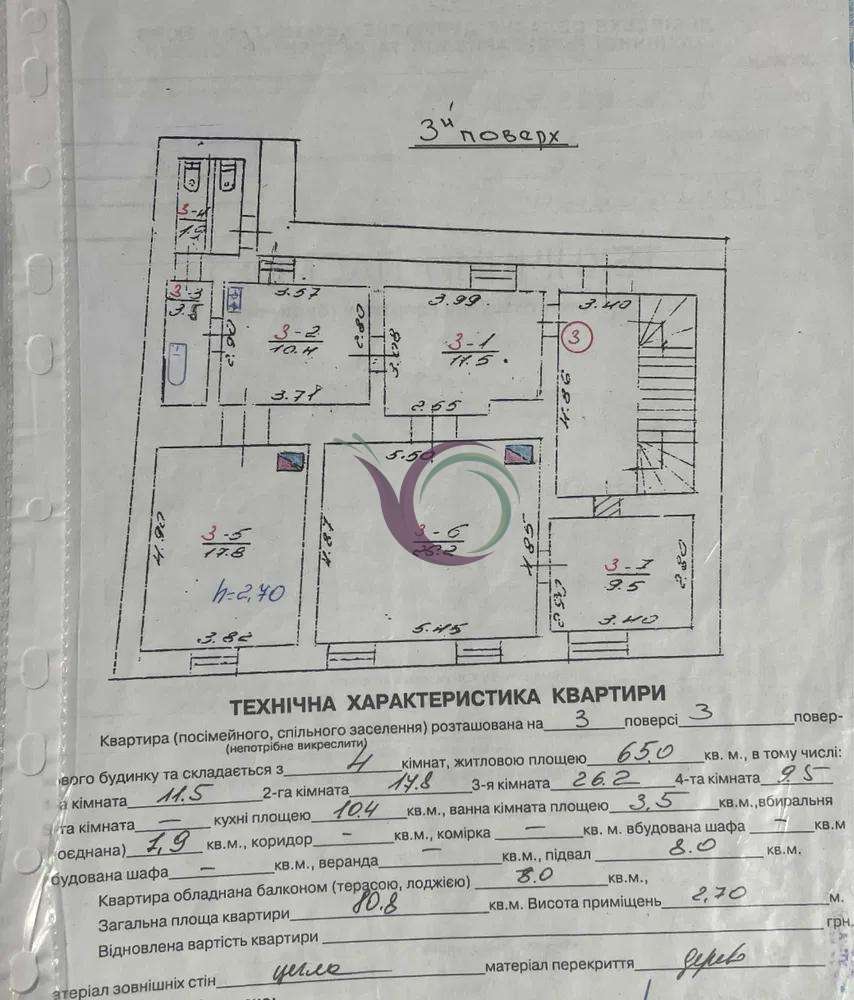 3й поверх
3-4
1.9
3-3
3.57
3.99
3.40
3-2
10.4
2.90
2.80
3-1
11.5
3.08
3
4.86
3.71
2.55
5.50
3-5
17.8
4.90
h=2,70
3.82
3-6
26.2
4.87
4.85
5.45
3-7
9.5
2.80
3.40
ТЕХНІЧНА ХАРАКТЕРИСТИКА КВАРТИРИ
Квартира (посімейного, спільного заселення) розташована на 3 поверсі 3 повер-
(непотрібне викреслити)
ового будинку та складається з 4 кімнат, житловою площею 65.0 кв. м., в тому числі:
а кімната 11.5 2-га кімната 17.8 3-я кімната 26.2 4-та кімната 9.5
та кімната — кухні площею 10.4 кв.м., ванна кімната площею 3,5 кв.м.,вбиральня
оєднана) 1,9 кв.м., коридор - кв.м., комірка — кв. м. вбудована шафа — кв.м
будована шафа — кв.м., веранда — кв.м., підвал 8.0 кв.м.
Квартира обладнана балконом (терасою, лоджією) 8.0 кв.м.,
Загальна площа квартири 80.8 кв.м. Висота приміщень 2,70 м.
Відновлена вартість квартири грн.
атеріал зовнішніх стін цегла матеріал перекриття дерево